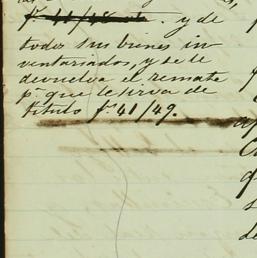 y de
todos sus bienes in
ventariados, y se le
devuelva el remate
pª que le sirva de
título fs 41/49.